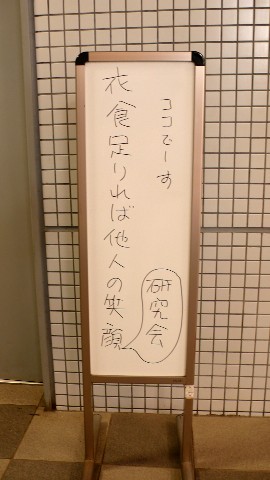 ココでーす
衣食足りれば他人の笑顔
研究会